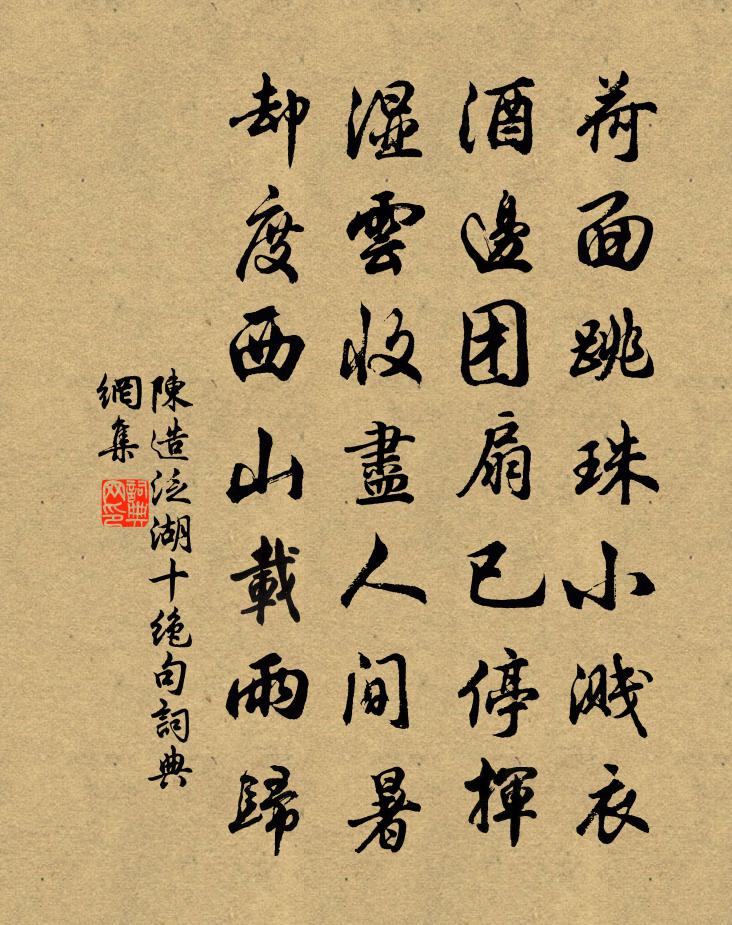 荷面跳珠小溅衣
酒邊团扇已停揮
湿雲收盡人间暑
却度西山載雨歸
陳造泛湖十绝句詞典
網集
詞典
网印